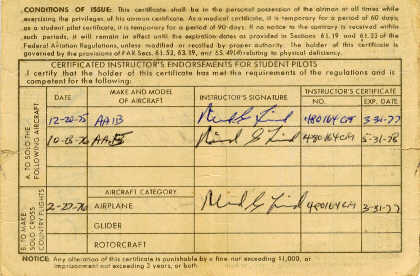 CONDITIONS OF ISSUE: This certificate shall be in the personal possession of the airman at all times while
exercising the privileges of his airman certificate. As a medical certificate, it is temporary for a period of 60 days;
as a student pilot certificate, it is temporary for a period of 90 days. If no notice to the contrary is received within
such periods, it will remain in effect until the expiration dates as provided in Sections 61.19 and 61.23 of the
Federal Aviation Regulations, unless modified or recalled by proper authority. The holder of this certificate is
governed by the provisions of FAR Secs. 61.53, 63.19, and 65.49(d) relating to physical deficiency.
CERTIFICATED INSTRUCTOR'S ENDORSEMENTS FOR STUDENT PILOTS
I certify that the holder of this certificate has met the requirements of the regulations and is
competent for the following:
DATE
MAKE AND MODEL OF AIRCRAFT
INSTRUCTOR'S SIGNATURE
INSTRUCTOR'S CERTIFICATE
NO.
EXP. DATE
A. TO SOLO THE FOLLOWING AIRCRAFT
12-20-75 AA1B 3-31-77
AA5 5-31-78
B. TO MAKE SOLO CROSS COUNTRY FLIGHTS
AIRCRAFT CATEGORY
2-27-76 AIRPLANE 3-31-77
GLIDER
ROTORCRAFT
NOTICE: Any alteration of this certificate is punishable by a fine not exceeding $1,000, or
imprisonment not exceeding 3 years, or both.